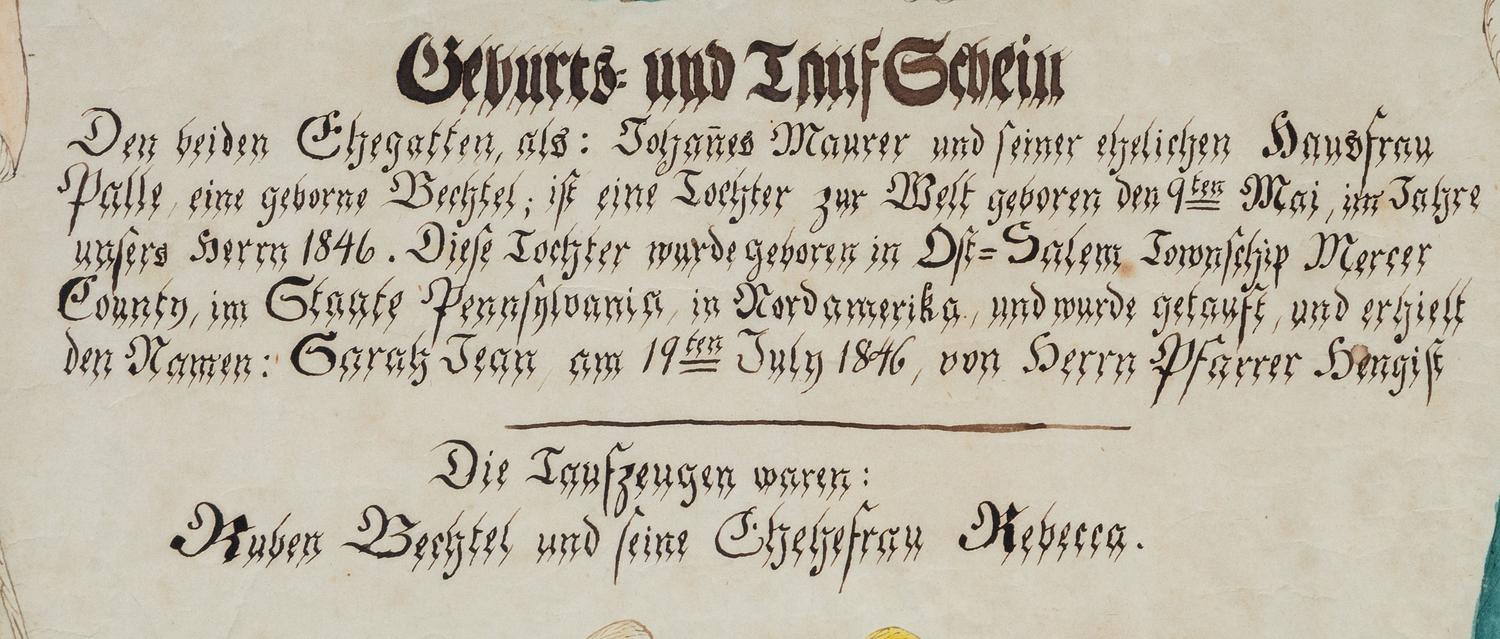 Geburts- und Tauf Schein
Den beiden Ehegatten, als: Johan̄es Maurer und seiner ehelichen Hausfrau
Palle, eine geborne Bechtel; ist eine Tochter zur Welt geboren den 9ten Mai, im Jahre
unsers Herrn 1846. Diese Tochter wurde geboren in Ost=Salem Township Mercer
County, im Staate Pennsylvania, in Nordamerika, und wurde getauft, und erhielt
den Namen: Sarah Jean, am 19ten July 1846, von Herrn Pfarrer Hengist
Die Taufzeugen waren:
Ruben Bechtel und seine Ehehefrau Rebecca.